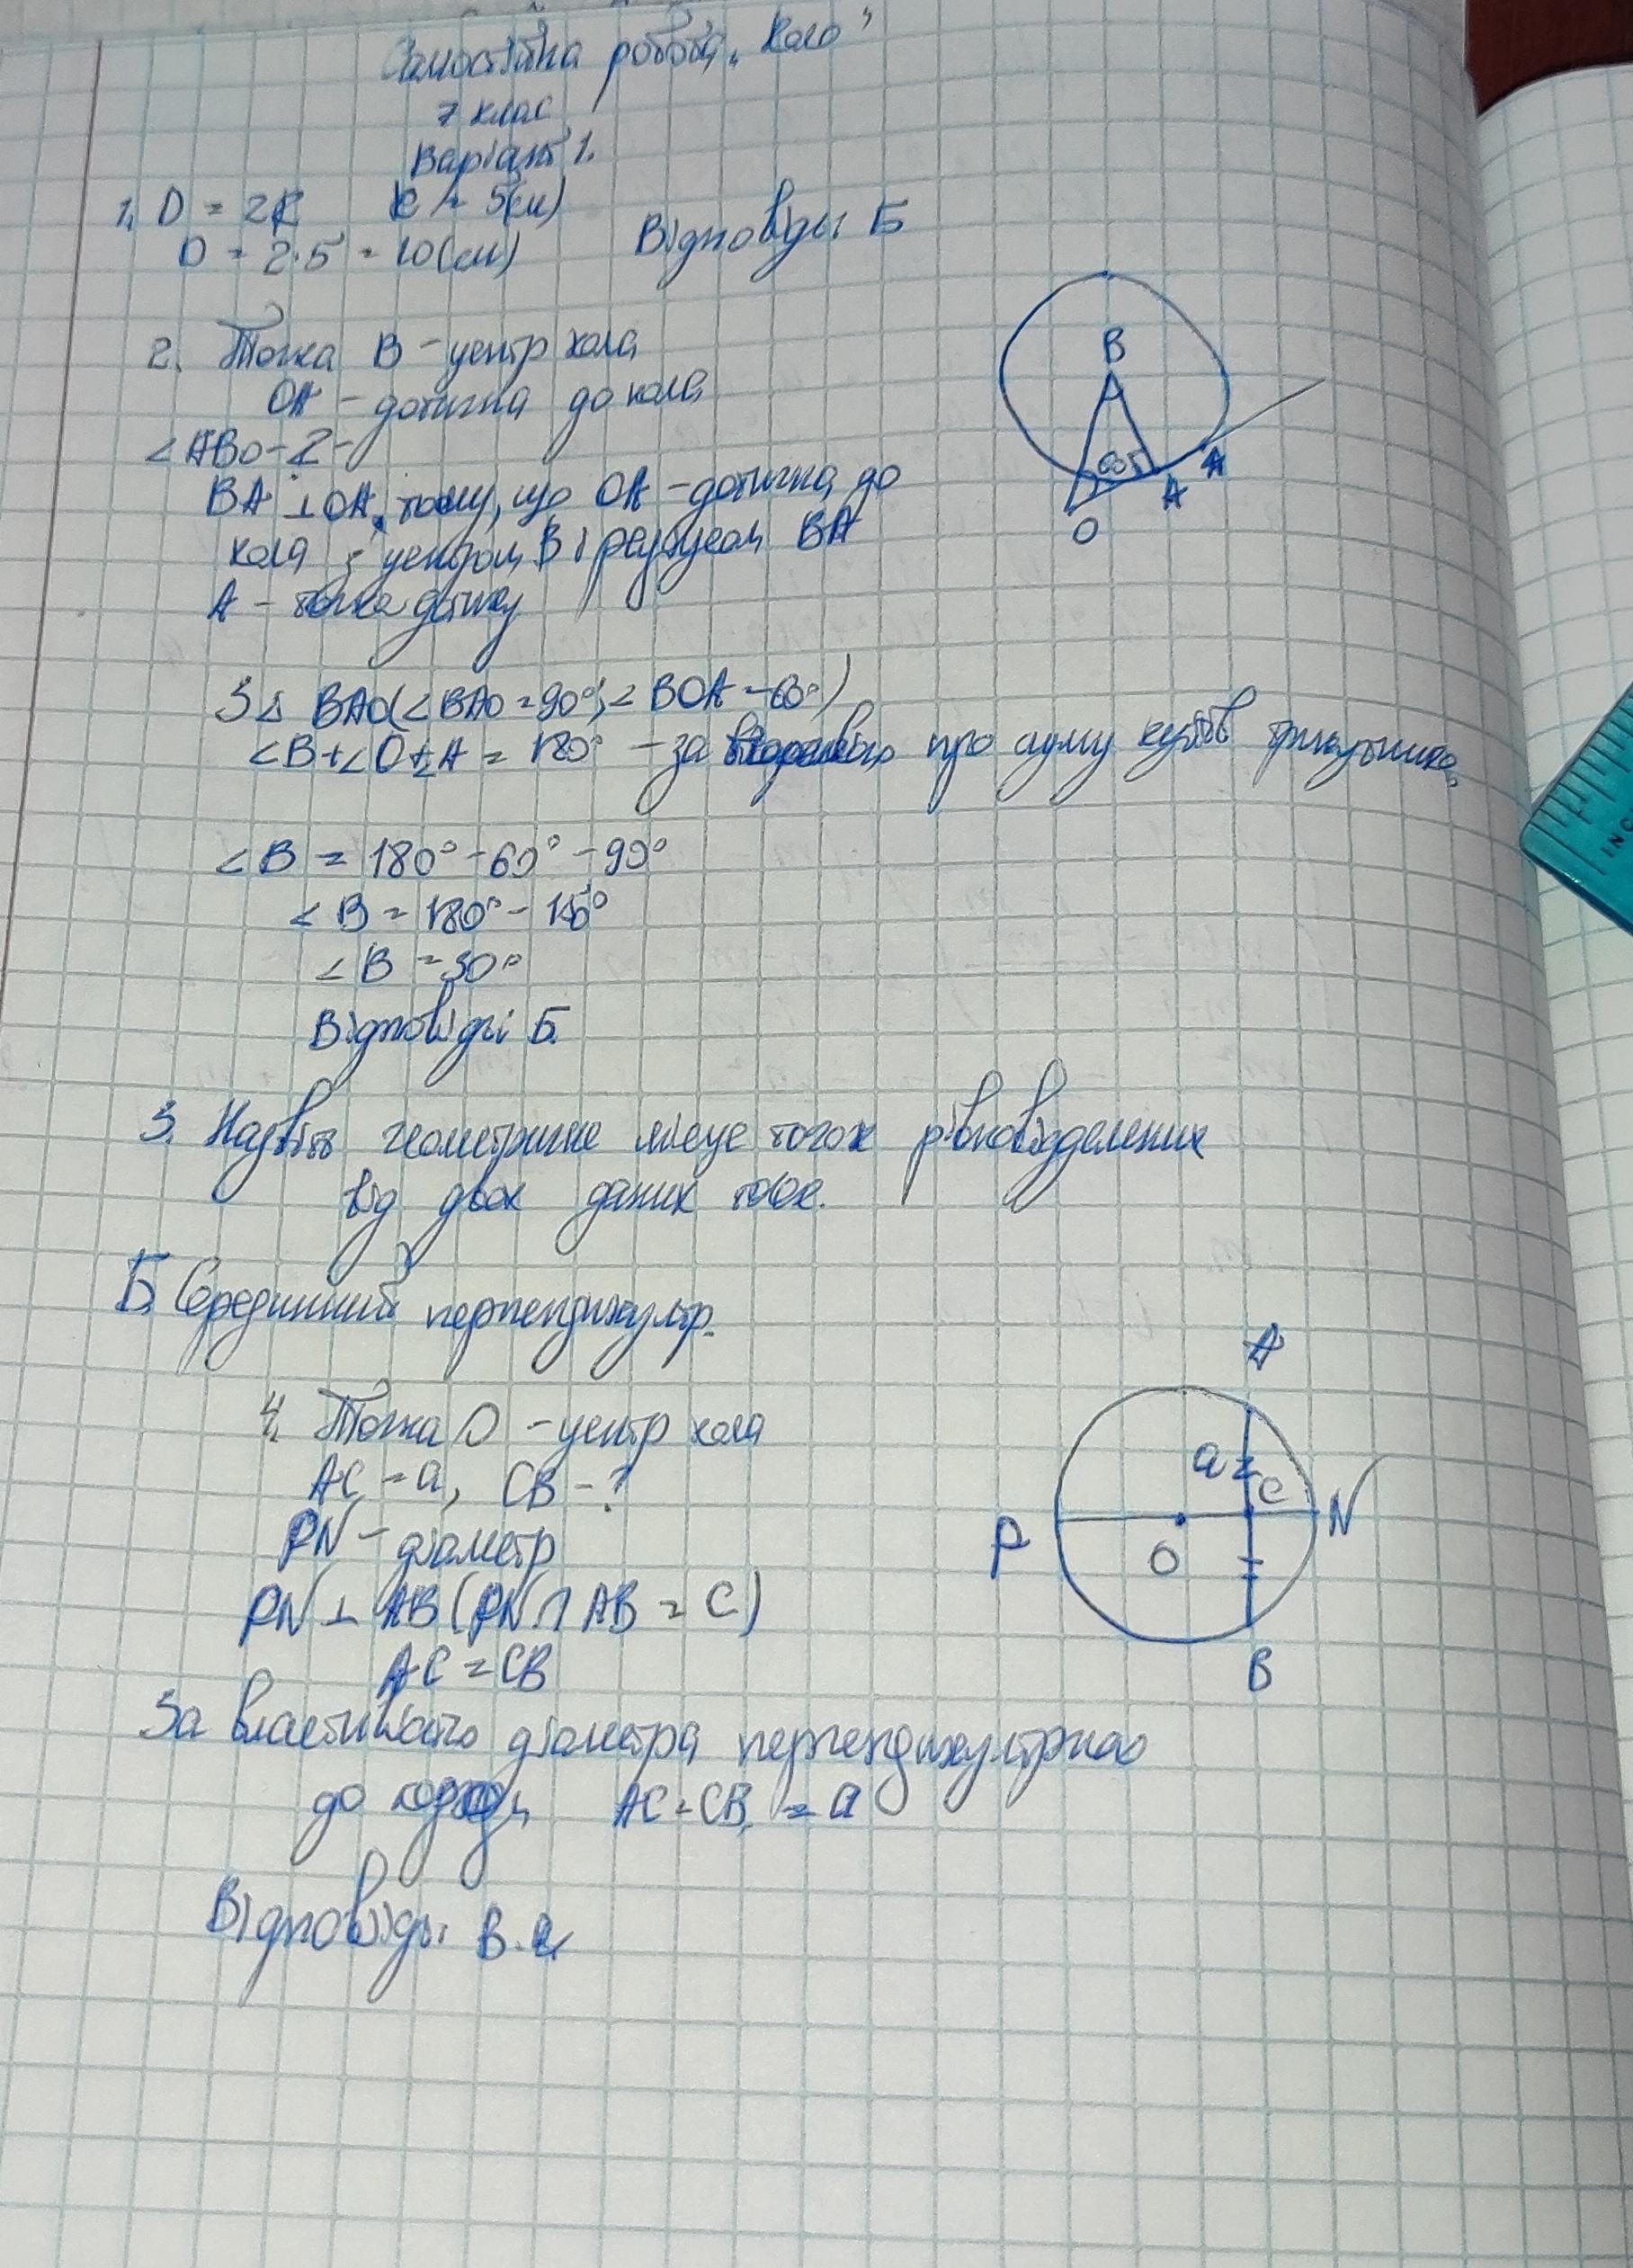 Самостійна робота „Коло"
7 клас
Варіант 1.
1. D = 2R R = 5(см)
D = 2·5 = 10(см) Відповідь: Б
2. Точка В - центр кола
ОА - дотична до кола
∠АВО - ? -
ВА ⊥ ОА, тому, що ОА - дотична до
кола з центром В і радіусом ВА
А - точка дотику
B
60°
A
A
O
З △ ВАО(∠ВАО = 90°, ∠ВОА - 60°)
∠В + ∠О + ∠А = 180° - за теоремою про суму кутів трикутника,
∠В = 180° - 60° - 90°
∠В = 180° - 150°
∠В = 30°
Відповідь: Б.
3. Назвіть геометричне місце точок рівновіддалених
від двох даних точок.
Б. Серединний перпендикуляр.
4. Точка О - центр кола
АС = а, СВ - ?
PN - діаметр
PN ⊥ АВ (PN ∩ АВ = С)
АС = СВ
A
a
C
P
O
N
B
За властивістю діаметра перпендикулярного
до хорди АС = СВ = а
Відповідь: В. а
INC